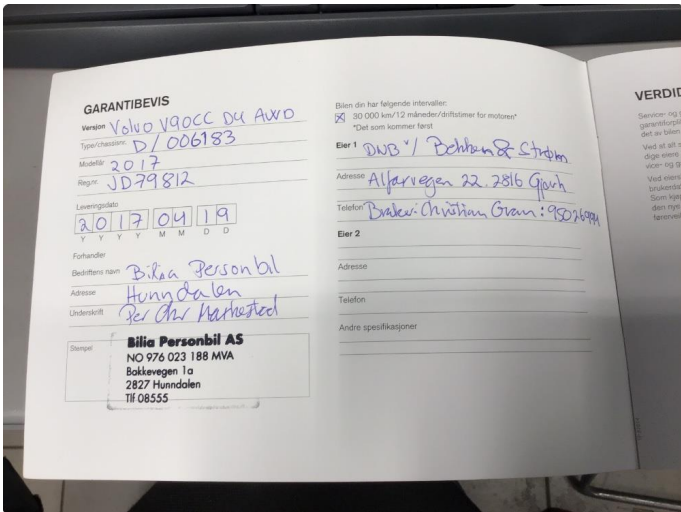 GARANTIBEVIS
Versjon Volvo V90CC D4 AWD
Type/chassisnr. D/006183
Modellår 2017
Reg.nr. JD79812
Leveringsdato
2 0 1 7 0 4 1 9
Y Y Y Y M M D D
Forhandler
Bedriftens navn Bilia Personbil
Adresse Hunndalen
Underskrift Per Chr
Stempel
Bilia Personbil AS
NO 976 023 188 MVA
Bakkevegen 1a
2827 Hunndalen
Tlf 08555
Bilen din har følgende intervaller:
30 000 km/12 måneder/driftstimer for motoren*
*Det som kommer først
Eier 1 DNB v/ & Strøm
Adresse Alfarvegen 22. 2816 Gjøvik
Telefon Bruker: Christian Gran:
Eier 2
Adresse
Telefon
Andre spesifikasjoner
VERDI
Service- og
garantiforpl
det av bilen
Ved at alt s
dige eiere
vice- og g
Ved eiers
brukerda
Som kjø
den nye
førervei